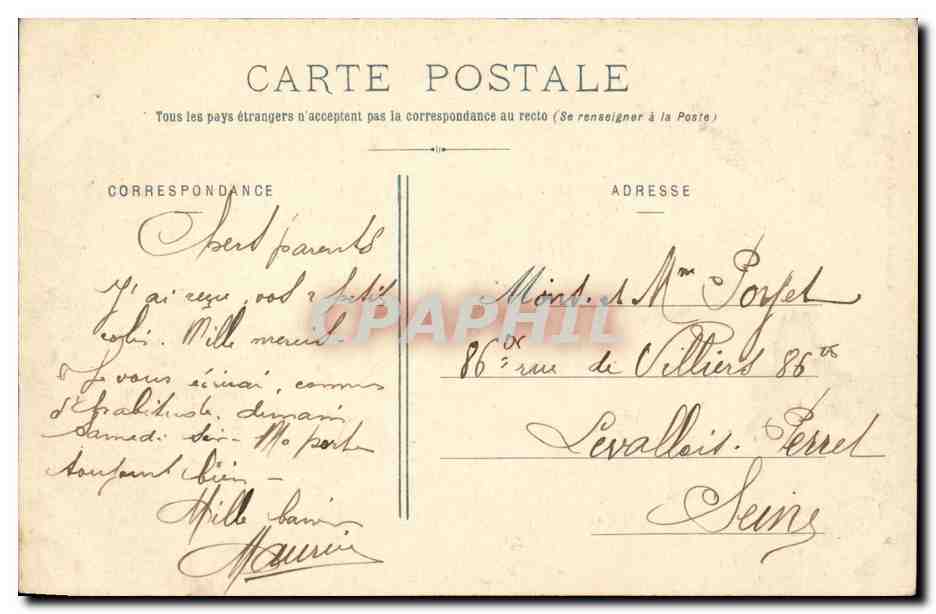 CARTE POSTALE
Tous les pays étrangers n'acceptent pas la correspondance au recto (Se renseigner à la Poste)
CORRESPONDANCE
ADRESSE
Chers parents
J'ai reçu vos 2 petit
colis. Mille mercis
Je vous écrirai, comme
d'habitude, demain
samedi soir - Me porte
toujours bien -
Mille baisers
Maurice
Mons. et Mme
86 rue de Villiers 86
Levallois-Perret
Seine
CPAPHIL